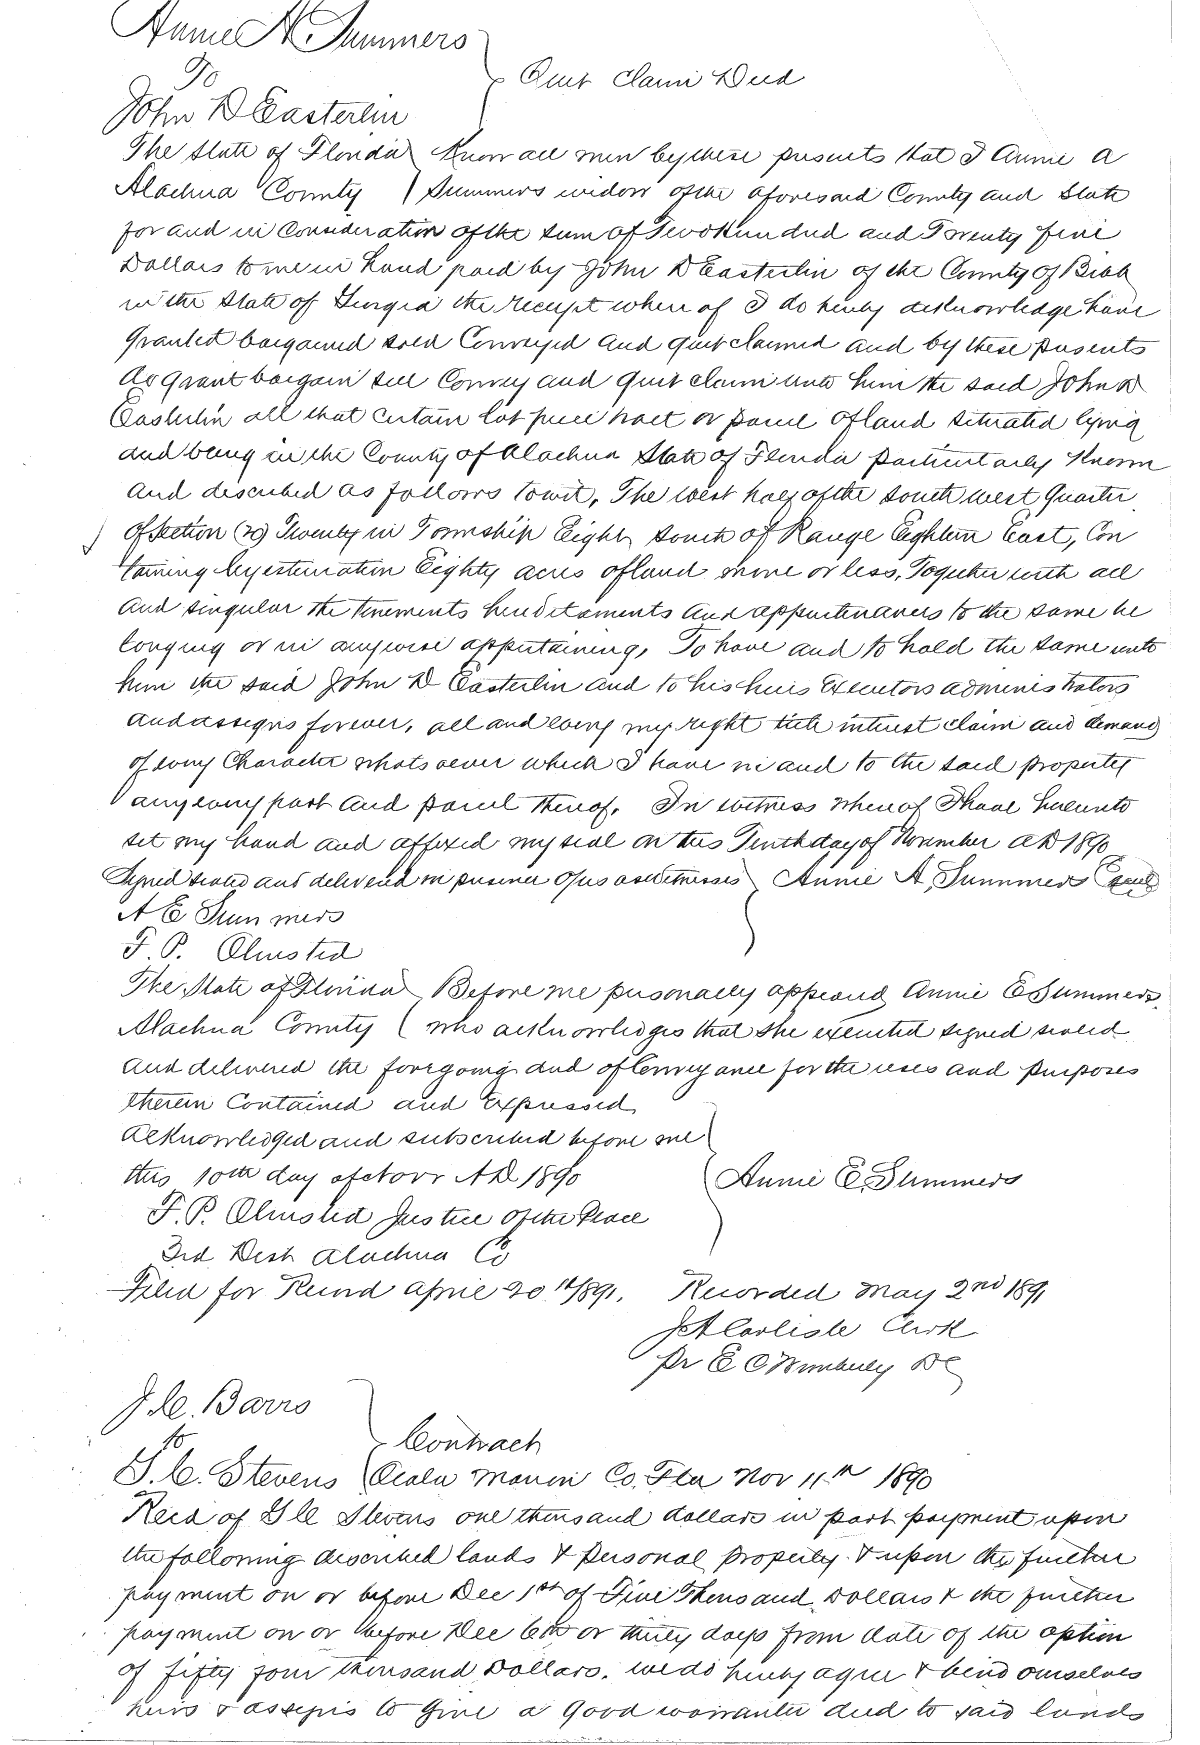 Annie A Summers
To
Quit Claim Deed
John D Easterlin
The State of Florida Know all men by these presents that I Annie A
Alachua County Summers widow of the aforesaid County and State
for and in consideration of the sum of Two Hundred and Twenty five
Dollars to me in hand paid by John D Easterlin of the County of Bibb
in the State of Georgia the receipt where of I do hereby acknowledge have
granted bargained sold Conveyed and quit claimed and by these presents
do grant bargain sell Convey and quit claim unto him the said John D
Easterlin all that certain lot piece tract or parcel of land situated lying
and being in the County of Alachua State of Florida particularly Known
and described as follows towit, The west half of the south west quarter
of section (20) Twenty in Township Eight south of Range Eighteen East, Con
taining by estimation Eighty acres of land more or less, Together with all
and singular the tenements hereditaments and appurtenances to the same be
longing or in anywise appertaining, To have and to hold the same unto
him the said John D Easterlin and to his heirs Executors administrators
and assigns forever, all and every my right title interest claim and demand
of every Character whatsoever which I have in and to the said property
any every part and parcel thereof, In witness whereof I have hereunto
set my hand and affixed my seal on this Tenth day of November AD 1890
Signed sealed and delivered in presence of us as witnesses Annie A, Summers (seal)
A E Summers
F. P. Olmsted
The State of Florida Before me personally appeared Annie E Summers,
Alachua County who acknowledges that she executed signed sealed
and delivered the foregoing deed of Conveyance for the uses and purposes
therein Contained and expressed
Acknowledged and subscribed before me
this 10th day of Novr AD 1890 Annie E. Summers
F. P. Olmsted Justice of the Peace
3rd Dist Alachua Co
Filed for Record April 20th 1891, Recorded May 2nd 1891
J A Carlisle Clerk
Pr E C Wimberly DC
J. C. Barrs
to
Contract
S. C. Stevens Ocala Marion Co. Fla Nov 11th 1890
Recd of Stevens one thousand dollars in part payment upon
the following described lands & personal property & upon the further
payment on or before Dec 1st of Five Thousand Dollars & the further
payment on or before Dec 6th or thirty days from date of the option
of fifty four thousand Dollars. we do hereby agree & bind ourselves
heirs & assigns to give a good warrantee deed to said lands